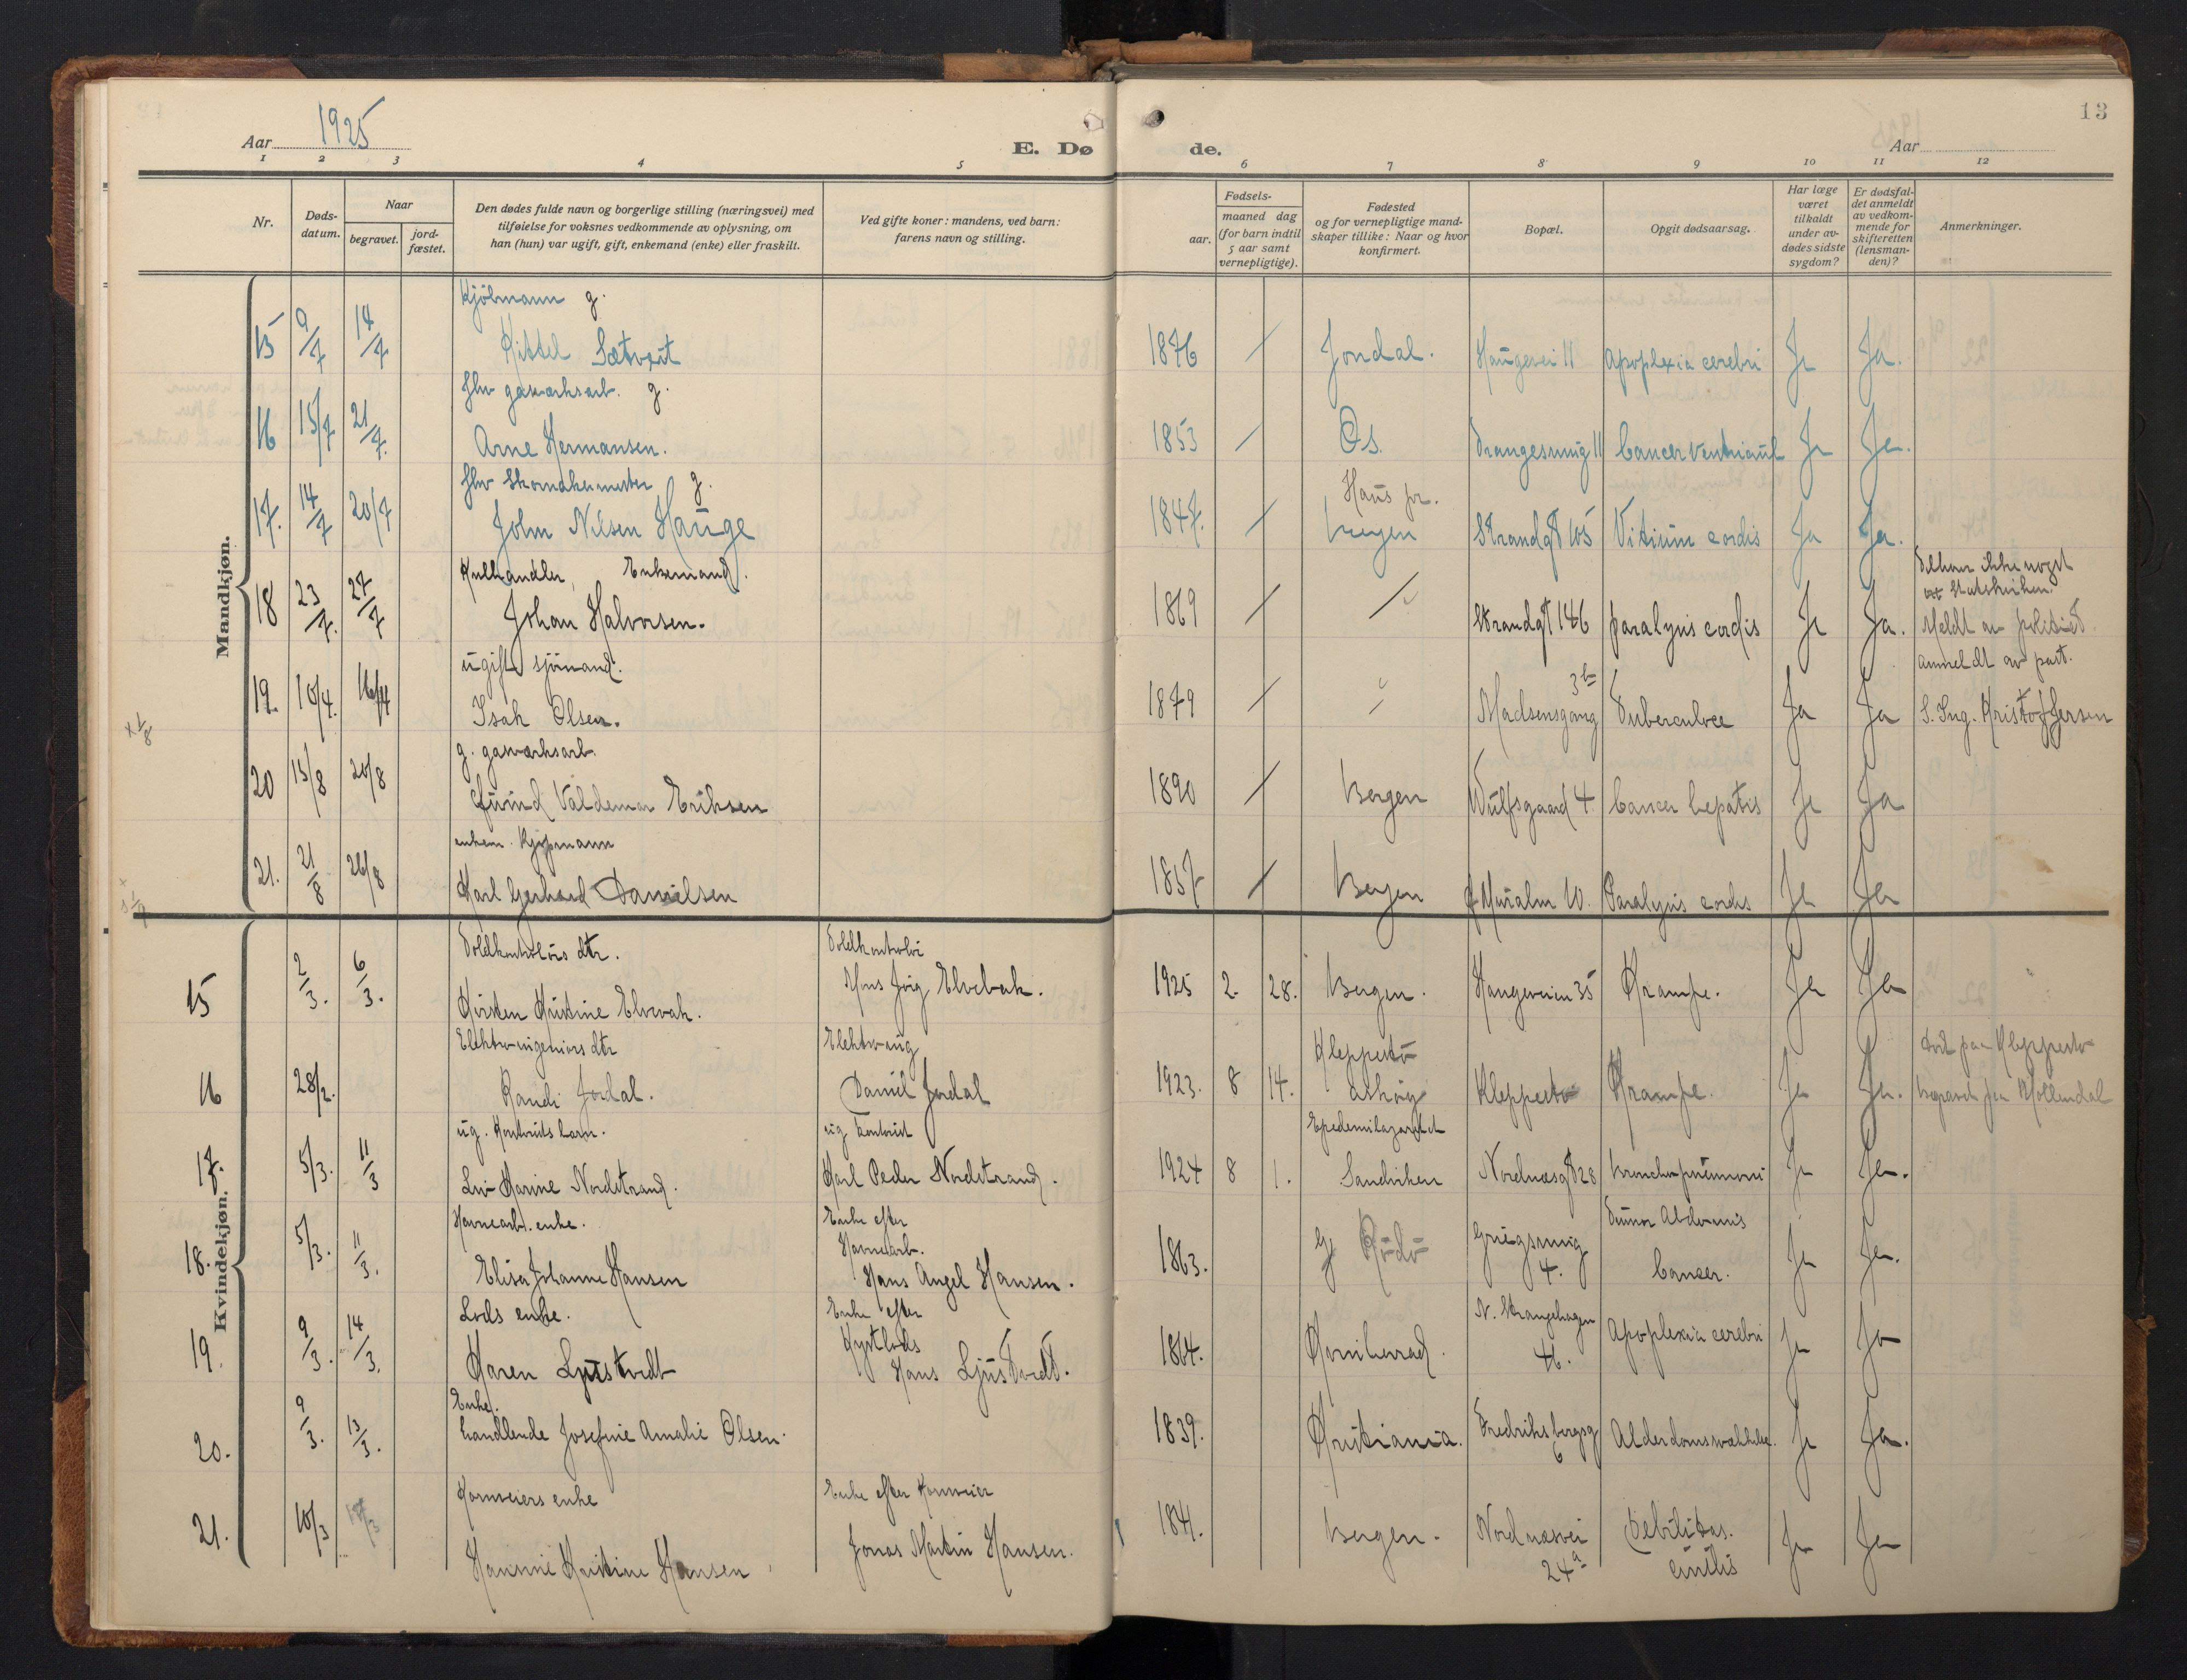 13
Aar 1925
E. Døde.
Aar
1 2 3 4 5 6 7 8 9 10 11 12
Nr.
Døds-
datum.
Naar
begravet.
jord-
fæstet.
Den dødes fulde navn og borgerlige stilling (næringsvei) med
tilføielse for voksnes vedkommende av oplysning, om
han (hun) var ugift, gift, enkemand (enke) eller fraskilt.
Ved gifte koner: mandens, ved barn:
farens navn og stilling.
Fødsels-
aar.
maaned dag
(for barn indtil
5 aar samt
vernepligtige).
Fødested
og for vernepligtige mand-
skaper tillike: Naar og hvor
konfirmert.
Bopæl.
Opgit dødsaarsag.
Har læge
været
tilkaldt
under av-
dødes sidste
sygdom?
Er dødsfal-
det anmeldt
av vedkom-
mende for
skifteretten
(lensman-
den)?
Anmerkninger.
Mandkjøn.
Kjøbmann g.
15 9/7 14/7 Kittel Sætveit 1876 / Jondal. Haugevei 11 Apoplexia cerebri Ja Ja.
fhv gasverksarb. g.
16 15/7 21/7. Arne Hermansen. 1853 / Os. Ja Ja.
fhv Skomakermester g. Haus pr.
17. 14/7 20/7 John Nilsen Hauge 1847. / Bergen Strandgt 105 Vitium cordis Ja Ja.
Kulhandler, Enkemand. Tilhører ikke noget
Statskirken.
18 23/7. 27/7 Johan Halvorsen. 1869 / / Strandgt 146 paralysis cordis Ja Ja. Meldt av politiet
ugift sjømand. anmeldt av past.
19. 10/4. 16/4 Isak Olsen. 1879 / Madsensgang Tuberculose Ja Ja S. Ing. Kristoffersen
g. gasverksarb.
20 15/8 20/8 Eivind Valdemar Eriksen 1890 / Bergen Wulfsgaard 4. Cancer hepatis Ja Ja
enkem. Kjøpmann
21. 21/8 26/8 Karl Gerhard Danielsen 1857 / Bergen Paralysis cordis Ja Ja
Kvindekjøn.
Toldkontrolørs dtr. Toldkontrolør
15 2/3. 6/3. Kirsten Kristine Elvebak. Elvebak. 1925 2. 28. Bergen. Haugeveien 35 Krampe. Ja Ja
Elektroingeniørs dtr Elektroing Kleppestø
16 28/2. Randi Jordal. Daniel Jordal 1923. 8 14. Askøy Kleppestø Krampe. Ja Ja. død paa Kleppestø
begravet paa Møllendal
ug. Kontorists barn. ug kontorist Epedemilazarettet
17. 5/3. 11/3 Liv Karine Nordstrand. Karl Peder Nordstrand. 1924 8 1. Sandviken Nordnæsgt 28 bronchopneumoni Ja Ja.
Havnearb. enke. Enke efter Havnearb. Tumor Abdominis
18. 5/3. 11/3. Elisa Johanne Hansen Hans Angel Hansen. 1863. Rødø Griegsmug 4. Cancer. Ja Ja.
Lods enke. Enke efter Kystlods N. Strangehagen
19. 9/3. 14/3. Karen Ljustvedt Hans Ljustvedt. 1864. Kvinherad. 46. Apoplexia cerebri Ja Ja
Enke.
20. 9/3. 13/3. handlende Josefine Amalie Olsen. 1839. Kristiania. Fredriksbergsg 6 Alderdomssvakhet. Ja Ja.
Kornveiers enke Enke efter Kornveier
21. 10/3 Hansine Kristine Hansen Jonas Martin Hansen. 1841. Bergen. Nordnæsvei 24a Debilitas. Ja Ja